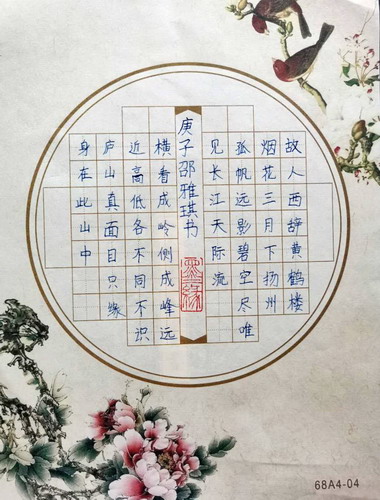 故人西辞黄鹤楼
烟花三月下扬州
孤帆远影碧空尽唯
见长江天际流
庚子邵雅琪书
墨缘
横看成岭侧成峰远
近高低各不同不识
庐山真面目只缘
身在此山中
68A4-04